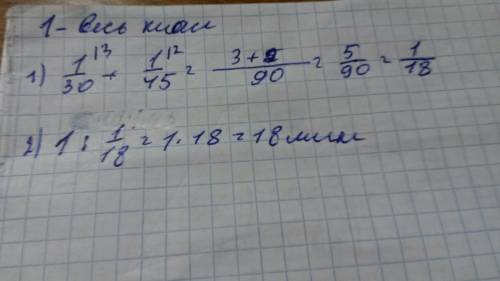 1 - весь
1) 1/30 ¹³ + 1/45 ¹² = 3+2/90 = 5/90 = 1/18
2) 1 : 1/18 = 1 · 18 = 18 мин